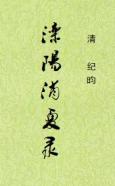 清 纪昀
滦阳消夏录